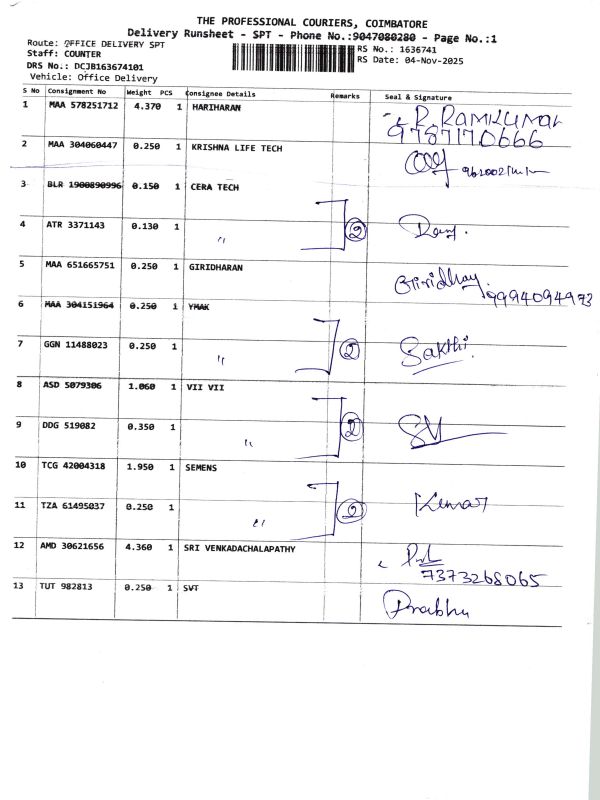 THE PROFESSIONAL COURIERS, COIMBATORE
Delivery Runsheet - SPT - Phone No.:9047080280 - Page No.:1
Route: OFFICE DELIVERY SPT
Staff: COUNTER
DRS No.: DCJB163674101
Vehicle: Office Delivery
RS No.: 1636741
RS Date: 04-Nov-2025
S No Consignment No Weight PCS Consignee Details Remarks Seal & Signature
1 MAA 578251712 4.370 1 HARIHARAN R. RAMKUMAR
9787170666
2 MAA 304060447 0.250 1 KRISHNA LIFE TECH
3 BLR 1900890996 0.150 1 CERA TECH
4 ATR 3371143 0.130 1 " 2
5 MAA 651665751 0.250 1 GIRIDHARAN Giridhar
9994094973
6 MAA 304151964 0.250 1 YMAK
7 GGN 11488023 0.250 1 " 2 Sakthi
8 ASD 5079306 1.060 1 VII VII
9 DDG 519082 0.350 1 " 2 SV
10 TCG 42004318 1.950 1 SEMENS
11 TZA 61495037 0.250 1 " 2 Kumar
12 AMD 30621656 4.360 1 SRI VENKADACHALAPATHY
7373268065
13 TUT 982813 0.250 1 SVT Prabhu